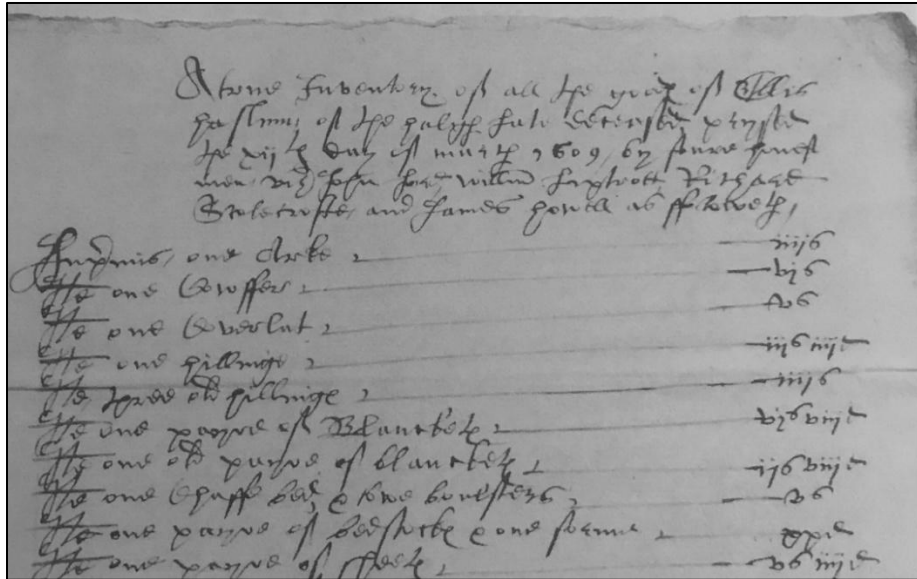 A true Inventory of all the goods of Ellis
of the late deceased prysed
the xijth day of march 1609, by foure honest
men viz John Willm Richard
and James howell as ffoloweth,
Inprimis, one Arke iiijs
Ite one Cowffer vjs
Ite one Coverlat vs
Ite one hillinge iijs iiijd
Ite three old hillinges iiijs
Ite one payre of Blanckets vjs viijd
Ite one old payre of blanckets ijs viijd
Ite one Chaffe bed & towe boulsters vs
Ite one payre of bedstocks & one forme xxd
Ite one payre of sheets vs iiijd